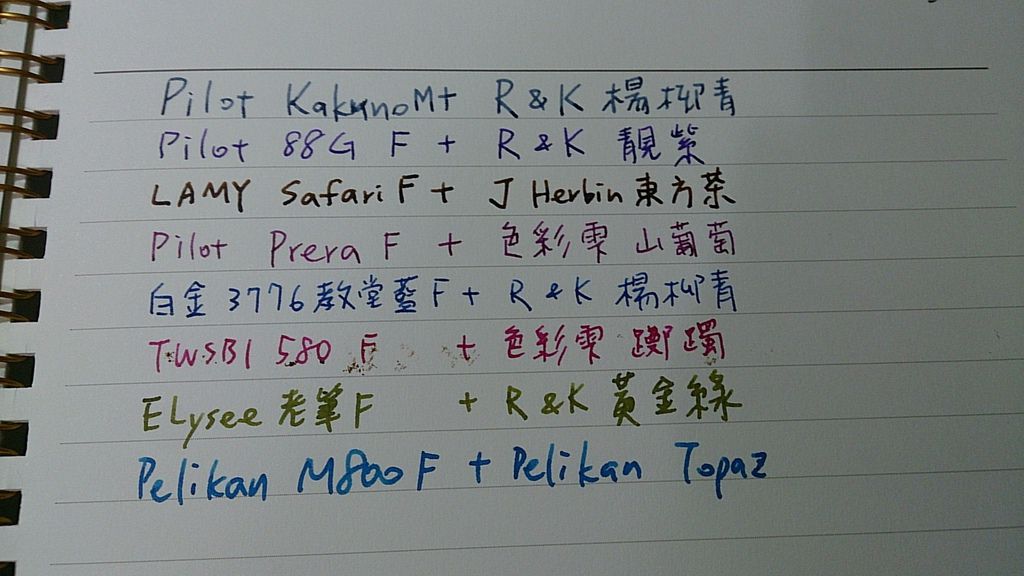 Pilot Kakuno M + R & K 楊柳青
Pilot 88G F + R & K 靚紫
LAMY Safari F + J Herbin 東方茶
Pilot Prera F + 色彩雫 山葡萄
白金 3776 教堂藍 F + R & K 楊柳青
TWSBI 580 F + 色彩雫 躑躅
Elysee 老筆 F + R & K 黃金綠
Pelikan M800 F + Pelikan Topaz